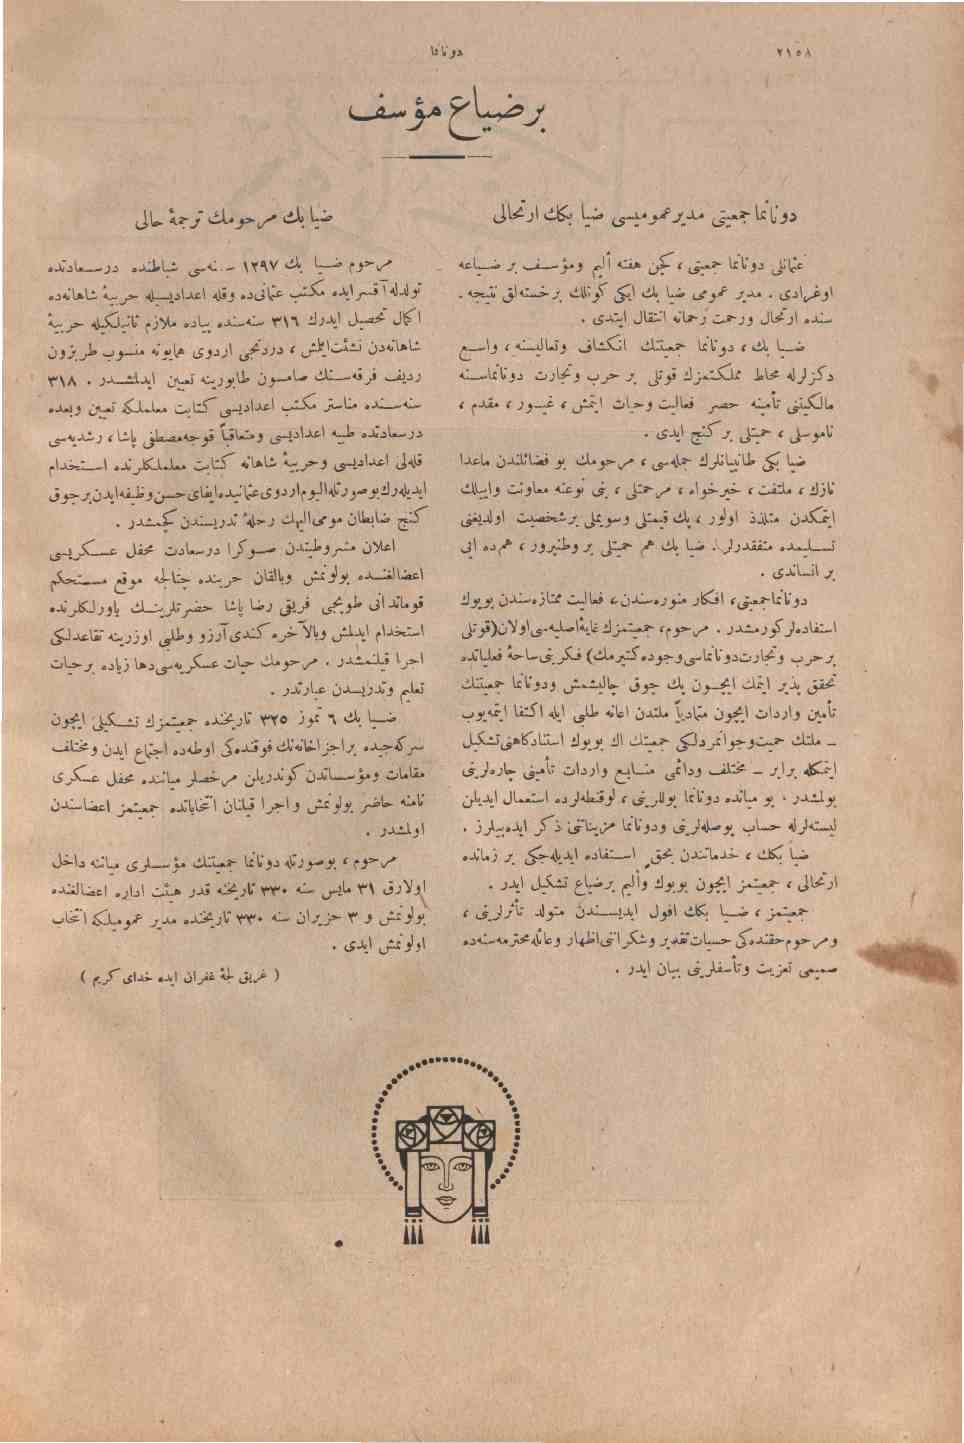 ٢١٥٨
دونانما
بر ضیاع مؤسف
دونانما جمعیتی مدیر عمومیسی ضیا بكك ارتحالی
عثمانلی دونانما جمعیتی، كچن هفته ألیم ومؤسف بر ضیاعه
اوغرادی. مدیر عمومی ضیا بك ایكی كونلك بر خسته‌لق نتیجه‌
سنده ارتحال ورحمت رحمانه انتقال ایتدی.
ضیا بك، دونانما جمعیتنك انكشاف وتعالیسنه، واسع
دكزلرله محاط مملكتمزك قوتلی بر حرب وتجارت دونانماسنه
مالكیتنی تأمینه حصر فعالیت وحیات ایتمش، غیور، مقدم،
ناموسلی، حمیتلی بر كنج ایدی.
ضیا بكی طانییانلرك جمله‌سی، مرحومك بو فضائلندن ماعدا
نازك، ملتفت، خیرخواه، مرحمتلی، بنی نوعنه معاونت واییلك
ایتمكدن متلذذ اولور، پك قیمتلی وسویملی بر شخصیت اولدیغنی
تسلیمده متفقدرلر. ضیا بك هم حمیتلی بر وطنپرور، هم‌ده ایی
بر انساندی.
دونانما جمعیتی، افكار منوره‌سندن، فعالیت ممتازه‌سندن بویوك
استفاده‌لر كورمشدر. مرحوم، جمعیتمزك غایهٔ اصلیه‌سی اولان (قوتلی
بر حرب وتجارت دونانماسی وجوده كتیرمك) فكرینی ساحهٔ فعلیاتده
تحقق پذیر ایتمك ایچون پك چوق چالیشمش ودونانما جمعیتنك
تأمین واردات ایچون متمادیاً ملتدن اعانه طلبی ایله اكتفا ایتمه‌یوب
ـ ملتك حمیت وجوانمردلكی جمعیتك اك بویوك استنادكاهنی تشكیل
ایتمكله برابر ـ مختلف ودائمی منابع واردات تأمینی چاره‌لرینی
بولمشدر. بو میانده دونانما پوللرینی، لوقنطه‌لرده استعمال ایدیلن
لیسته‌لرله حساب پوصله‌لرینی ودونانما مزیناتنی ذكر ایده‌بیلرز.
ضیا بكك، خدماتندن بحق استفاده ایدیله‌جكی بر زمانده
ارتحالی، جمعیتمز ایچون بویوك وألیم بر ضیاع تشكیل ایدر.
جمعیتمز، ضیا بكك افول ابدیسندن متولد تأثرلرینی،
ومرحوم حقنده‌كی حسیات تقدیر وشكراننی اظهار وعائلهٔ محترمه‌سنه‌ده
صمیمی تعزیت وتأسفلرینی بیان ایدر.
ضیا بك مرحومك ترجمهٔ حالی
مرحوم ضیا بك ١٢٩٧ سنه‌سی شباطنده درسعادتده
تولدله آقسرایده مكتب عثمانی‌ده وقله اعدادیسیله حربیهٔ شاهانه‌ده
اكمال تحصیل ایدرك ٣١٦ سنه‌سنده پیاده ملازم ثانیلكیله حربیهٔ
شاهانه‌دن نشئت ایلمش، دردنجی اردوی همایونه منسوب طربزون
ردیف فرقه‌سنك صامسون طابورینه تعیین ایدلمشدر. ٣١٨
سنه‌سنده مناستر مكتب اعدادیسی كتابت معلملكه تعیین وبعده
درسعادتده طبیه اعدادیسی ومتعاقباً قوجه مصطفی پاشا، رشدیه‌سی
قله‌لی اعدادیسی وحربیهٔ شاهانه كتابت معلملكلرنده استخدام
ایدیله‌رك بو صورتله الیوم اردوی عثمانیده ایفای حسن وظیفه ایدن بر چوق
كنج ضابطان مومی الیهك رحلهٔ تدریسندن كچمشدر.
اعلان مشروطیتدن صوكرا درسعادت محفل عسكریسی
اعضالغنده بولونمش وبالقان حربنده چتالجه موقع مستحكم
قوماندانی طوپجی فریقی رضا پاشا حضرتلرینك یاورلكلرنده
استخدام ایدلمش وبالآخره كندی آرزو وطلبی اوزرینه تقاعدلكی
اجرا قیلنمشدر. مرحومك حیات عسكریه‌سی دها زیاده بر حیات
تعلیم وتدریسدن عبارتدر.
ضیا بك ٦ تموز ٣٢٥ تاریخنده جمعیتمزك تشكیلی ایچون
سركه‌جیده بر اجزاخانه‌نك فوقنده‌كی اوطه‌ده اجتماع ایدن ومختلف
مقامات ومؤسساتدن كوندریلن مرخصلر میاننده محفل عسكری
نامنه حاضر بولونمش واجرا قیلنان انتخاباتده جمعیتمز اعضاسندن
اولمشدر.
مرحوم، بو صورتله دونانما جمعیتنك مؤسسلری میاننه داخل
اولارق ٣١ مایس سنه ٣٣٠ تاریخنه قدر هیئت اداره اعضالغنده
بولونمش و ٣ حزیران سنه ٣٣٠ تاریخنده مدیر عمومیلكه انتخاب
اولونمش ایدی.
( غریق لجهٔ غفران ایده خدای كریم )